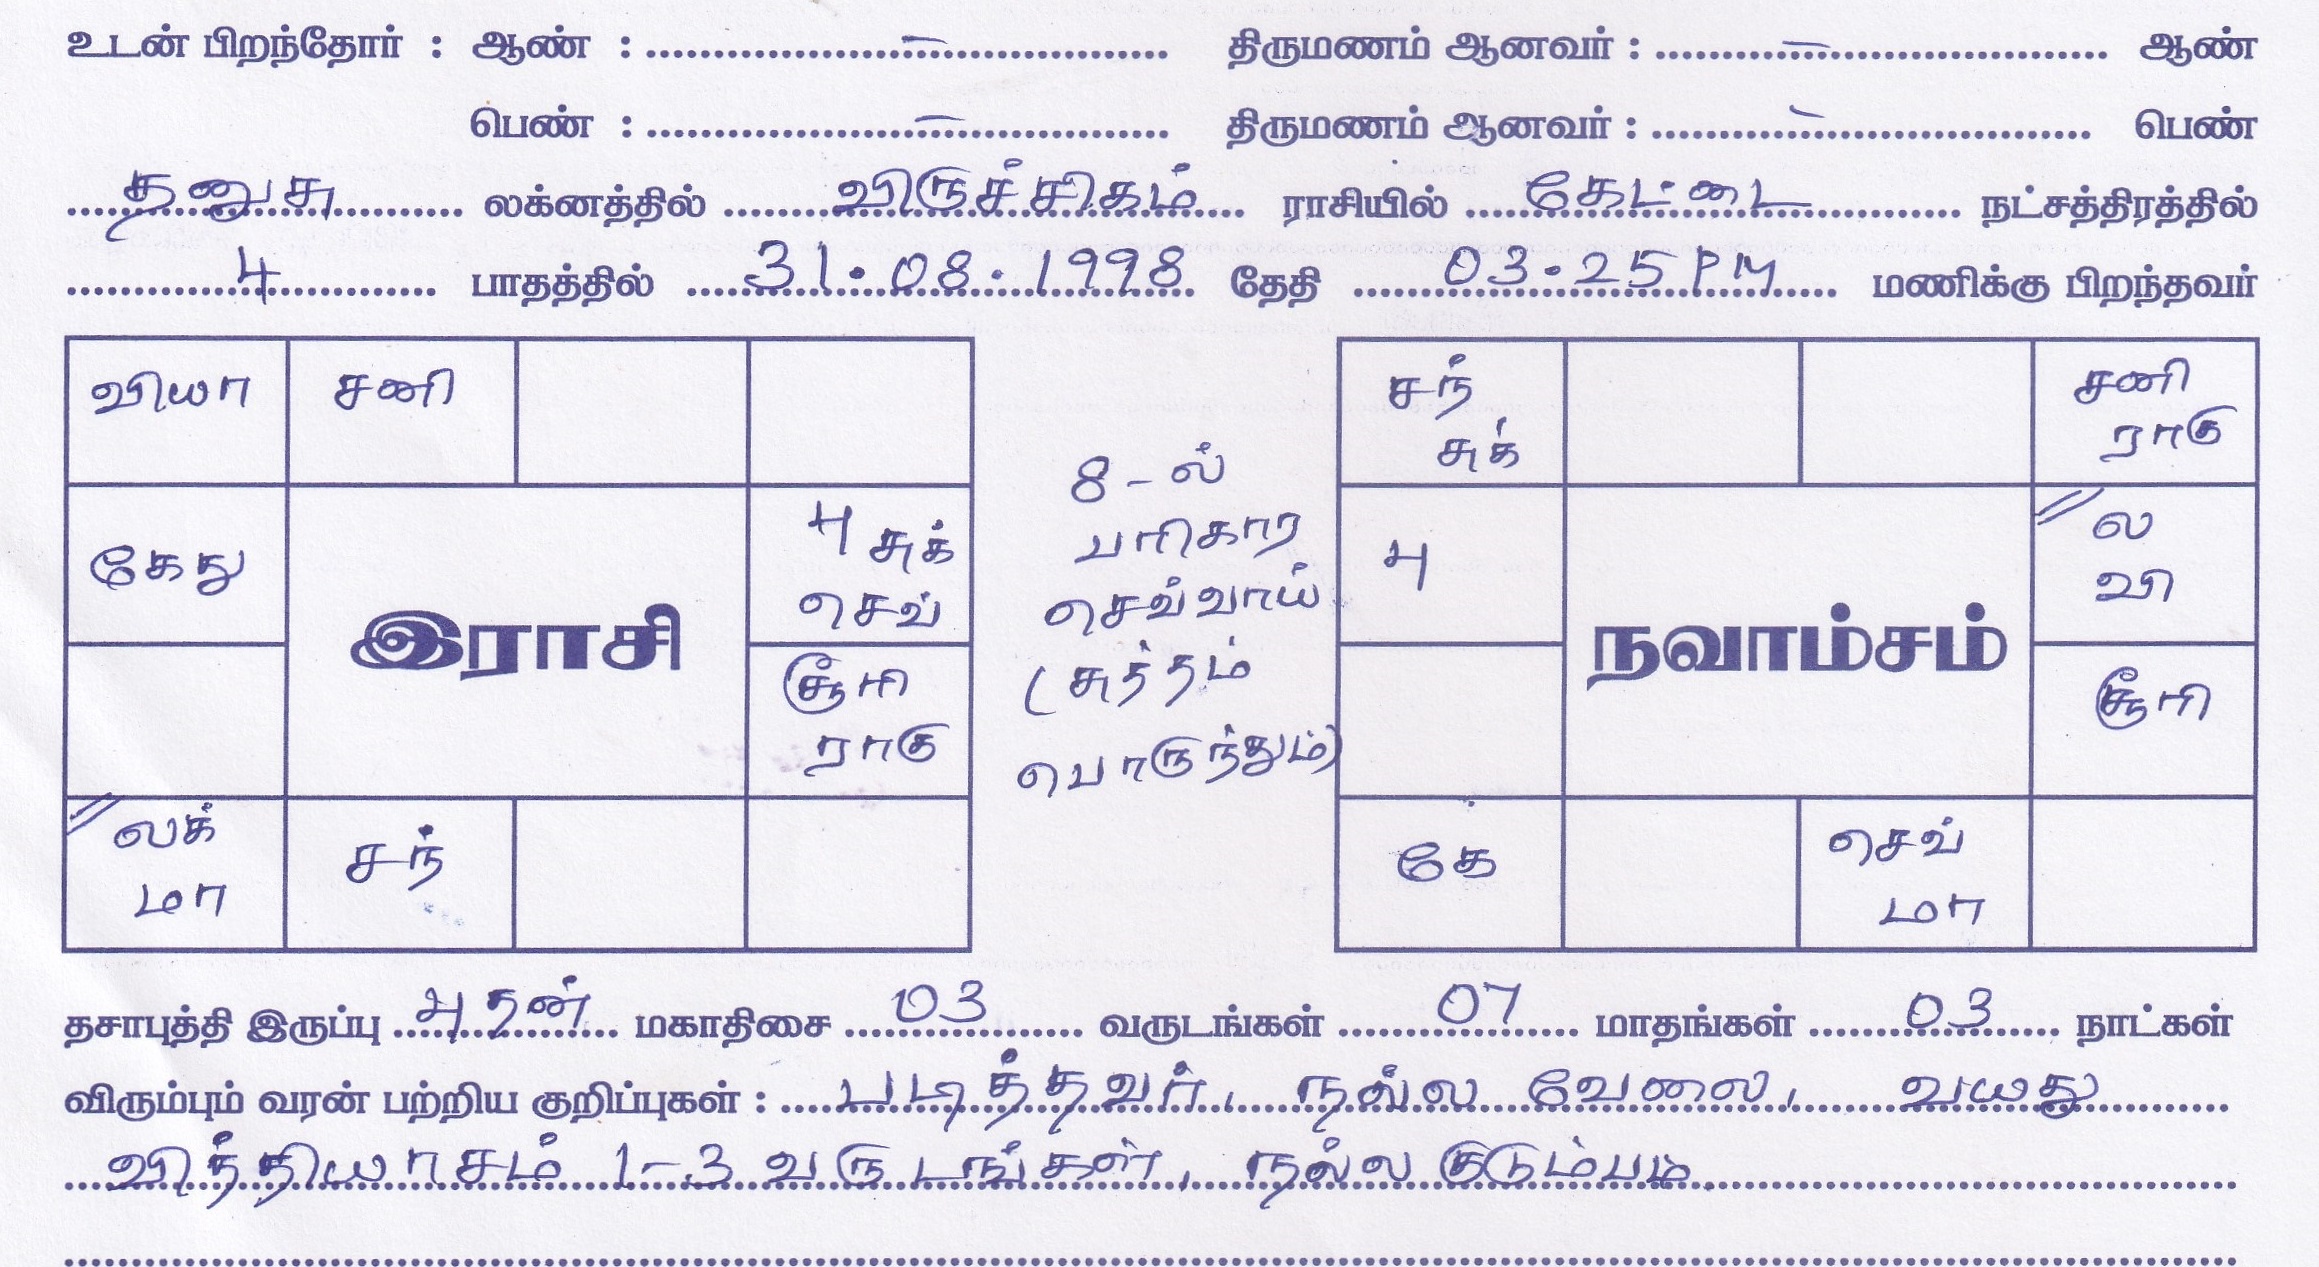 உடன் பிறந்தோர் : ஆண் : ............ – ............ திருமணம் ஆனவர் : ............ – ............ ஆண்
பெண் : ............ – ............ திருமணம் ஆனவர் : ............ – ............ பெண்
தனுசு லக்னத்தில் விருச்சிகம் ராசியில் கேட்டை நட்சத்திரத்தில்
4 பாதத்தில் 31.08.1998 தேதி 03.25 PM மணிக்கு பிறந்தவர்
வியா சனி
கேது
இராசி
பு சுக்
செவ்
சூரி
ராகு
லக்
மா
சந்
8-ல்
பரிகார
செவ்வாய்
(சுத்தம்
பொருந்தும்)
சந்
சுக்
சனி
ராகு
பு
நவாம்சம்
ல
வி
சூரி
கே
செவ்
மா
தசாபுத்தி இருப்பு புதன் மகாதிசை 03 வருடங்கள் 07 மாதங்கள் 03 நாட்கள்
விரும்பும் வரன் பற்றிய குறிப்புகள் : படித்தவர், நல்ல வேலை, வயது
வித்தியாசம் 1-3 வருடங்கள், நல்ல குடும்பம்.